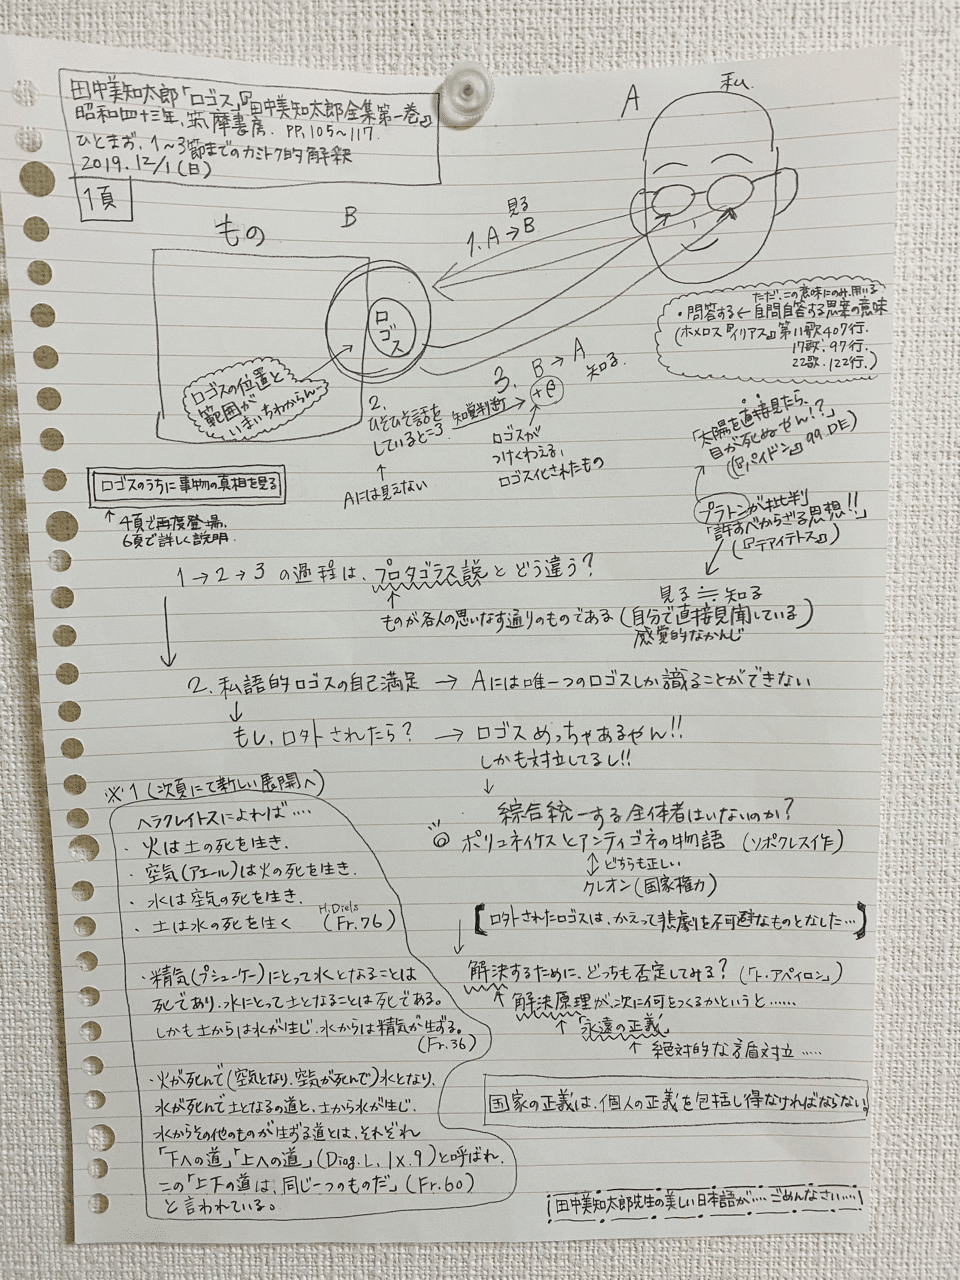 田中美知太郎「ロゴス」『田中美知太郎全集第一巻』
昭和四十三年、筑摩書房. PP,105~117.
ひとまず、1~3節までのカミトク的解釈
2019. 12/1(日)
1頁
A
私
もの
B
見る
1. A→B
ロゴス
ロゴスの位置と
範囲が
いまいちわからん
2.
ひそひそ話を
しているところ
↑
Aには見えない
3. B→A
知る
知覚判断→+β
↑
ロゴスが
つけくわえる,
ロゴス化されたもの
ただ、この意味にのみ用いる
・問答する←自問自答する思案の意味
(ホメロス『イリアス』第11歌407行.
17歌. 97行.
22歌. 122行.)
「太陽を直接見たら、
目が死ぬやん!?」
(『パイドン』99 DE)
プラトンが批判
「許すべからざる思想!!」
(『テアイテトス』)
見る≒知る
(自分で直接見聞している)
感覚的なかんじ
ロゴスのうちに事物の真相を見る
↑4項で再度登場.
6項で詳しく説明.
1→2→3 の過程は、プロタゴラス説と どう違う?
↑
ものが各人の思いなす通りのものである
2. 私語的ロゴスの自己満足 → Aには唯一つのロゴスしか識ることができない
↓
もし、ロ外されたら? → ロゴス めっちゃあるやん!!
しかも対立してるし!!
↓
綜合統一する全体者はいないのか?
◎ ポリュネイケスとアンティゴネの物語 (ソポクレス作)
↕どちらも正しい
クレオン(国家権力)
【ロ外されたロゴスは、かえって悲劇を不可避なものとなした…】
↓
解決するために、どっちも否定してみる?(「ト・アペイロン」)
↑解決原理が、次に何をつくるかというと……
↑「永遠の正義」
↑絶対的な矛盾対立……
国家の正義は、個人の正義を包括し得なければならない。
※1(次頁にて新しい展開へ)
ヘラクレイトスによれば….
・火は土の死を生き.
・空気(アエール)は火の死を生き.
・水は空気の死を生き.
・土は水の死を生く
H.Diels
(Fr.76)
・精気(プシューケー)にとって水となることは
死であり、水にとって土となることは死である。
しかも土からは水が生じ、水からは精気が生ずる。
(Fr.36)
・火が死んで(空気となり、空気が死んで)水となり、
水が死んで土となるの道と、土から水が生じ、
水からその他のものが生ずる道とは、それぞれ
「下への道」「上への道」(Diog.L, IX.9)と呼ばれ、
この「上下の道は、同じ一つのものだ」(Fr.60)
と言われている。
田中美知太郎先生の美しい日本語が…. ごめんなさい….